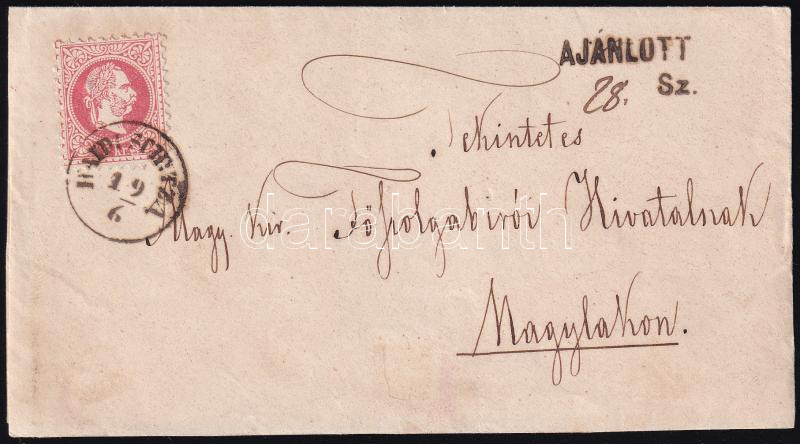 AJÁNLOTT
28. Sz.
Tekintetes
Magy. Kir. Főszolgabirói Hivatalnak
Nagylakon.
19
6
darabanth